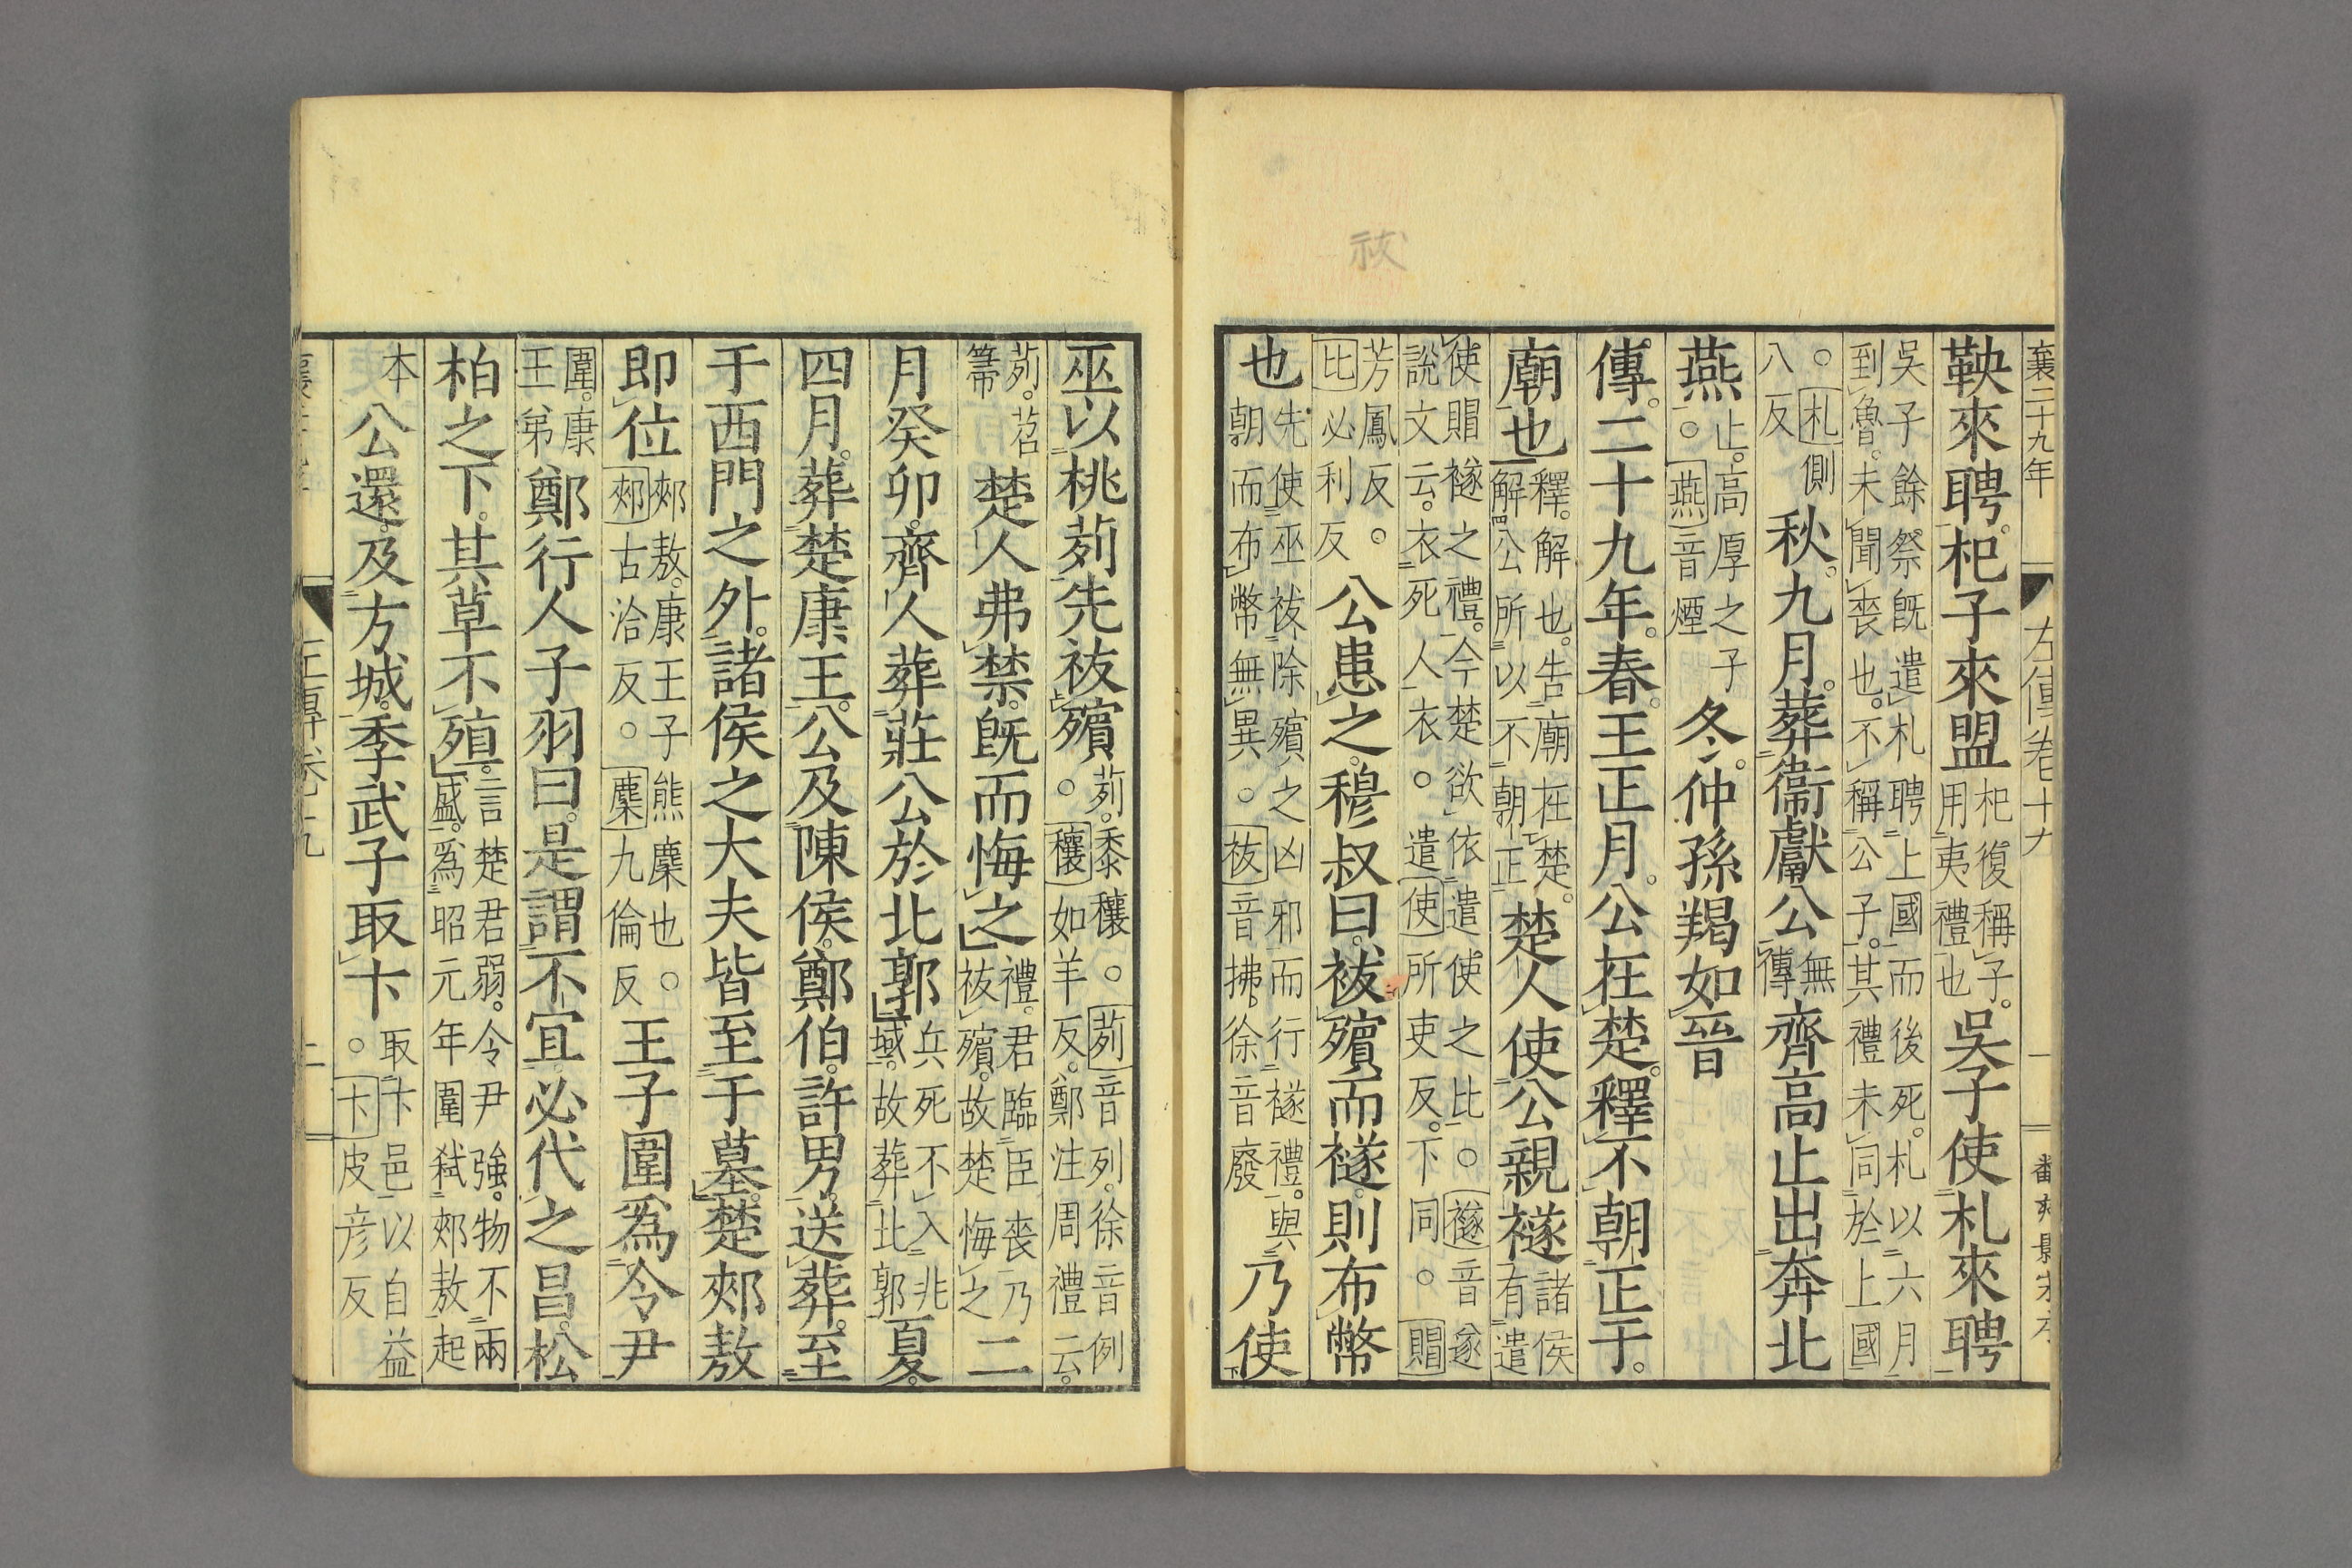 祓
襄二十九年 左傳卷十九 一
鞅來聘。杞子來盟杞復稱子。用夷禮也吳子使札來聘
吳子餘祭既遣札聘上國而後死。札以六月到魯。未聞喪也。不稱公子。其禮未同於上國
○札側八反秋。九月。葬衞獻公無傳齊高止出奔北
燕止。高厚之子○燕音煙冬。仲孫羯如晉
傳。二十九年。春。王正月。公在楚。釋不朝正于。
廟也釋。解也。告廟在楚。解公所以不朝正楚人使公親襚諸侯有遣
使賵襚之禮。今楚欲依遣使之比○襚音遂說文云。衣死人衣。○遣使所吏反。下同。○賵
芳鳳反。○比必利反公患之。穆叔曰。祓殯而襚。則布幣
也先使巫祓除殯之凶邪而行襚禮。與朝而布幣無異。○祓音拂。徐音廢乃使
巫以桃茢先祓殯茢。黍穰○茢音列。徐音例○穰如羊反。鄭注周禮云。
茢。苕箒楚人弗禁。既而悔之禮。君臨臣喪乃祓殯。故楚悔之二
月癸卯。齊人葬莊公於北郭兵死不入兆域。故葬北郭夏。
四月。葬楚康王。公及陳侯。鄭伯。許男。送葬。至
于西門之外。諸侯之大夫皆至于墓。楚郟敖
即位郟敖。康王子熊麇也。○郟古洽反。○麇九倫反王子圍爲令尹
圍。康王弟鄭行人子羽曰。是謂不宜。必代之昌。松
柏之下。其草不殖。言楚君弱。令尹強。物不兩盛。爲昭元年圍弒郟敖起
本公還。及方城。季武子取卞取卞邑以自益。○卞皮彥反